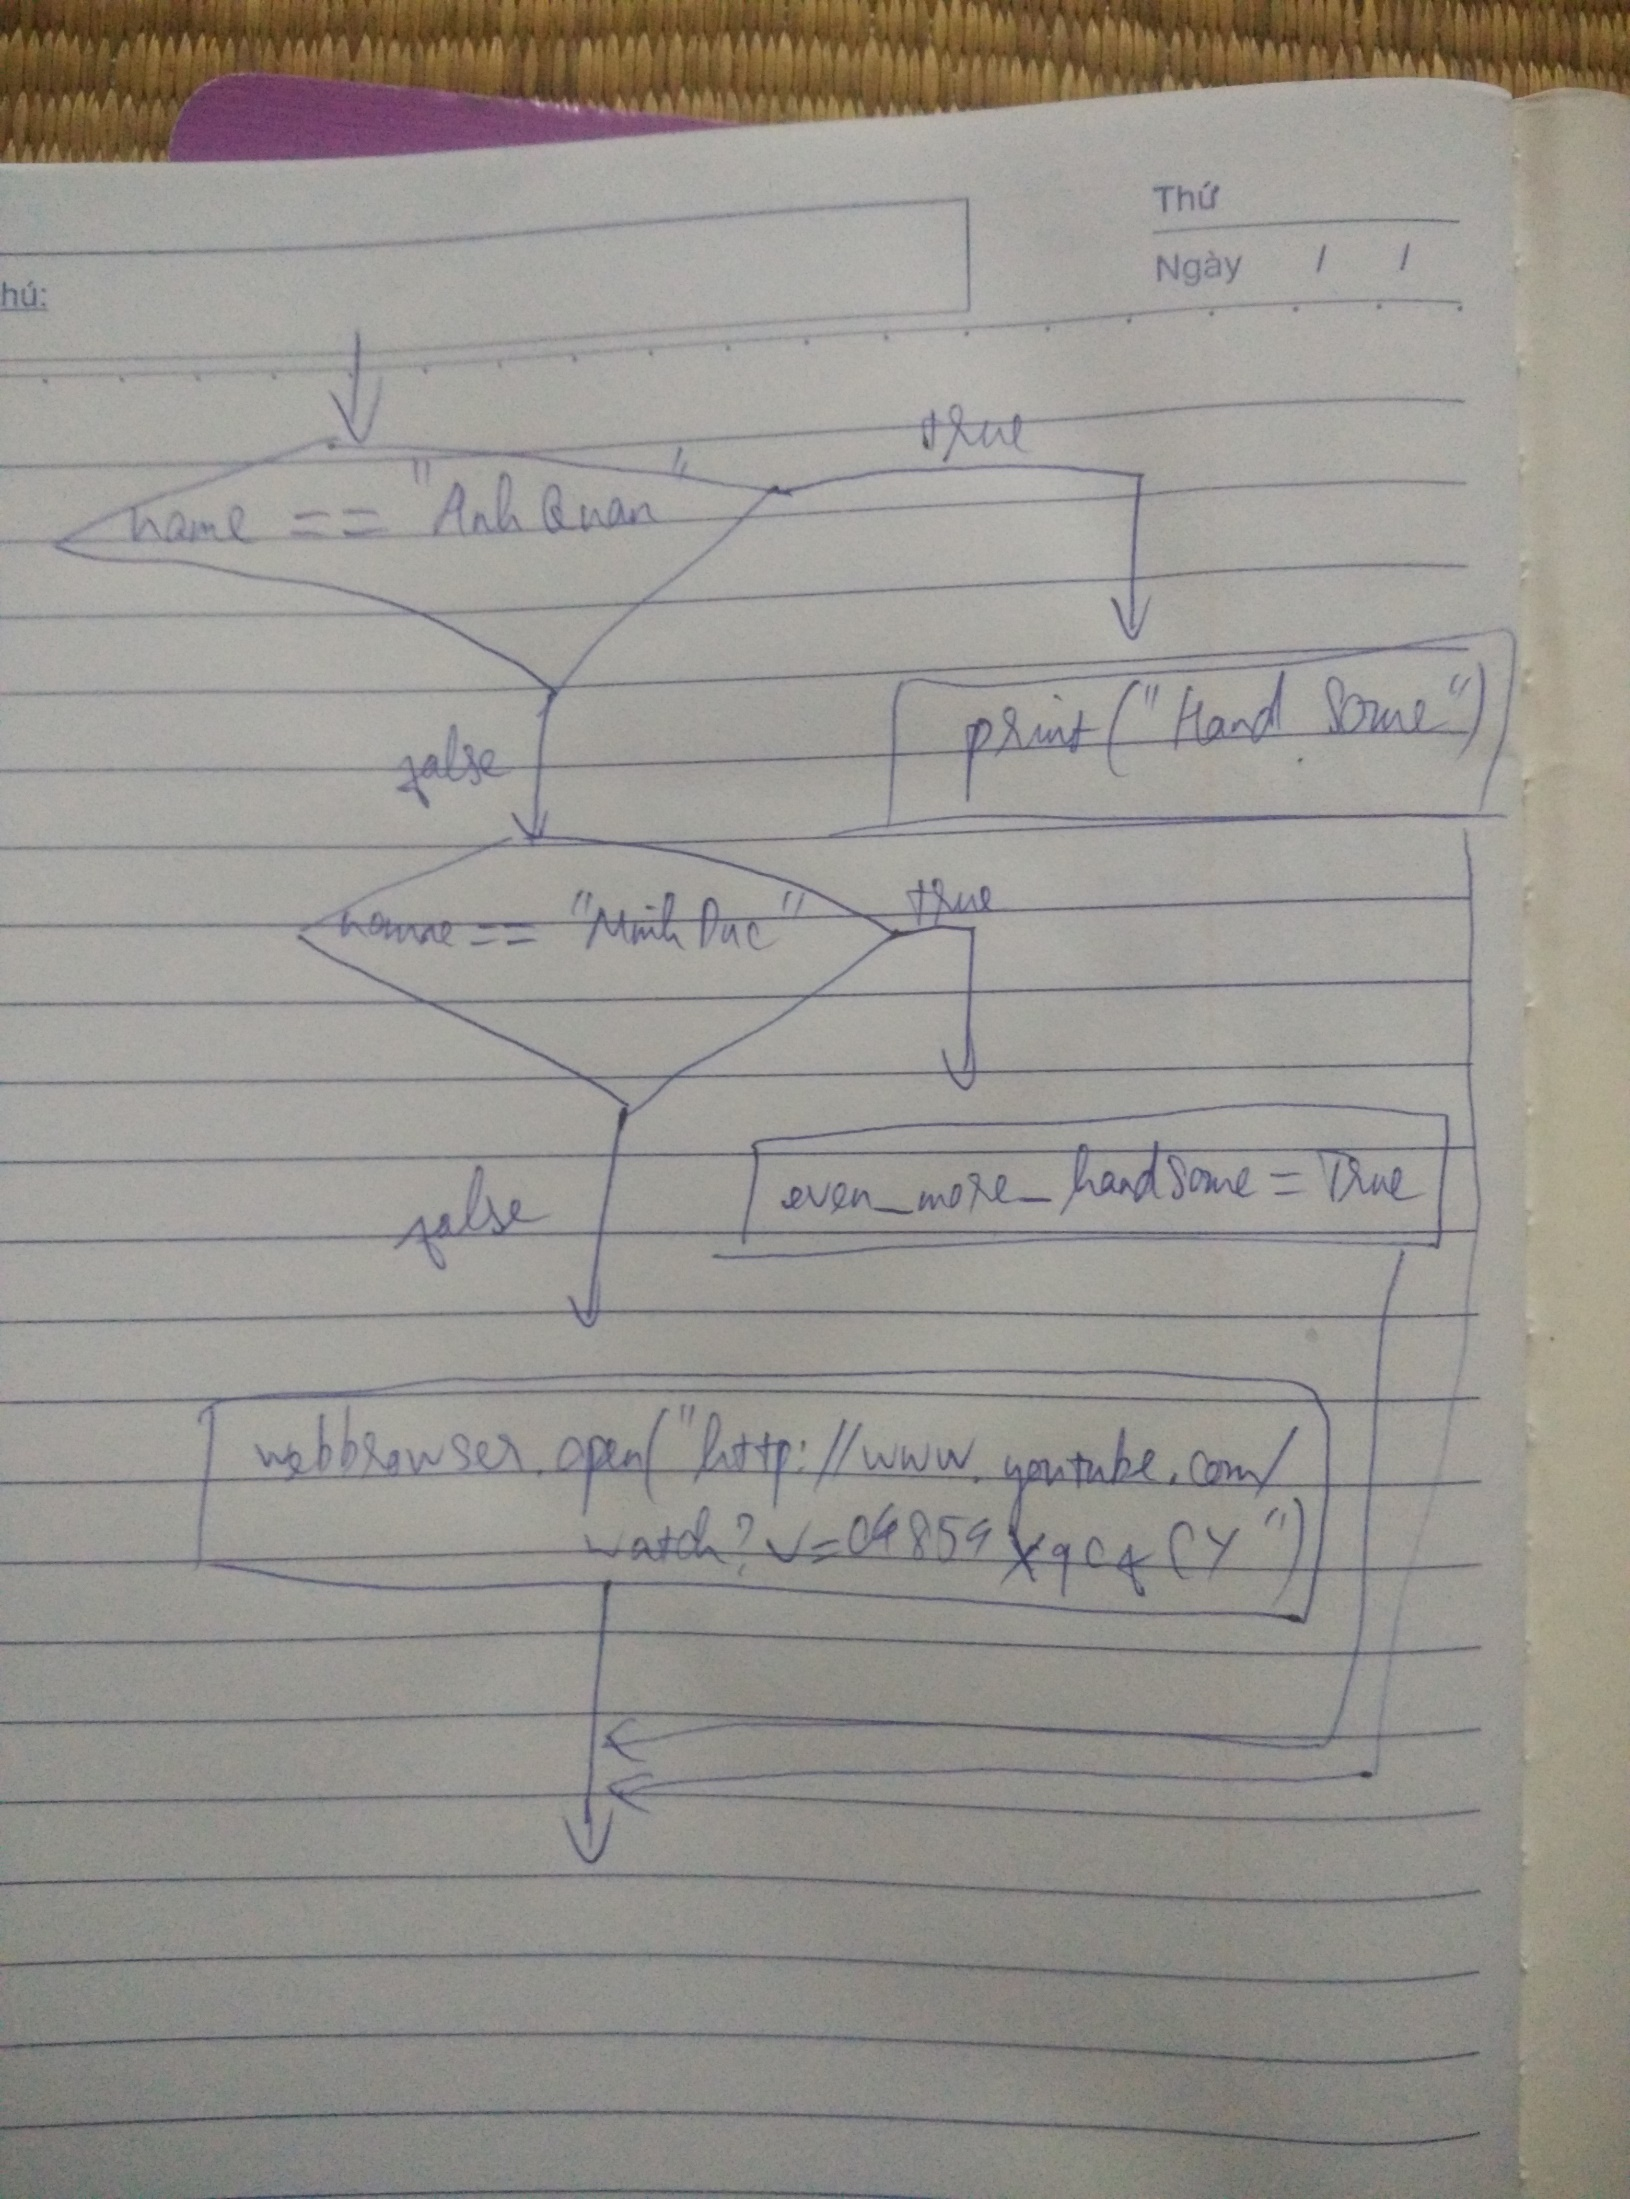 Thứ
Ngày / /
hú:
true
name == "Anh Quan"
print("Hand Some")
false
name == "Minh Duc"
true
even_more_handsome = True
false
webbrowser.open("http://www.youtube.com/
watch?v=